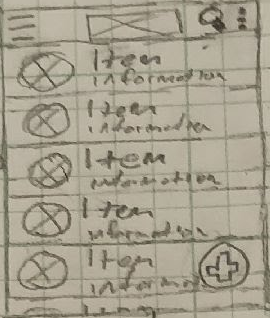 Item
information
Item
information
Item
information
Item
information
Item
informa